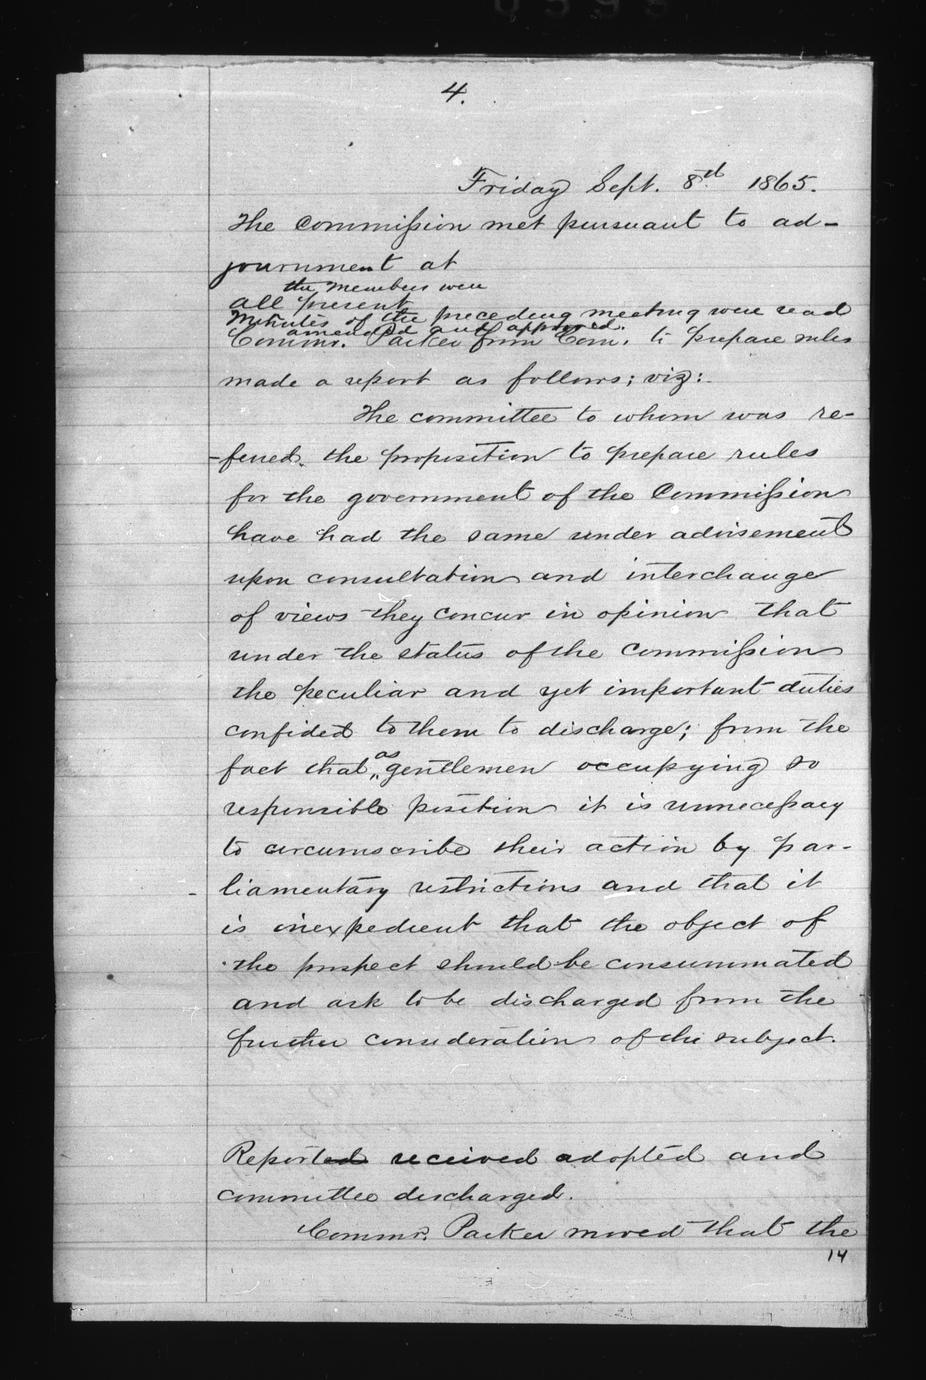 4.
Friday Sept. 8th 1865.
The Commission met pursuant to ad-
journment at
the members were
all present
Minutes of the preceding meeting were read
amended and approved.
Commr. Parker from Com. to prepare rules
made a report as follows; viz:
The committee to whom was re-
-ferred. the proposition to prepare rules
for the government of the Commission
have had the same under advisement
upon consultation and interchange
of views they concur in opinion that
under the status of the Commission
the peculiar and yet important duties
confided to them to discharge; from the
fact that as gentlemen occupying so
responsible position it is unnecessary
to circumscribe their action by par-
liamentary restrictions and that it
is inexpedient that the object of
the prospect should be consummated
and ask to be discharged from the
further consideration of the subject.
Reported received adopted and
committee discharged.
Commr. Parker moved that the
14